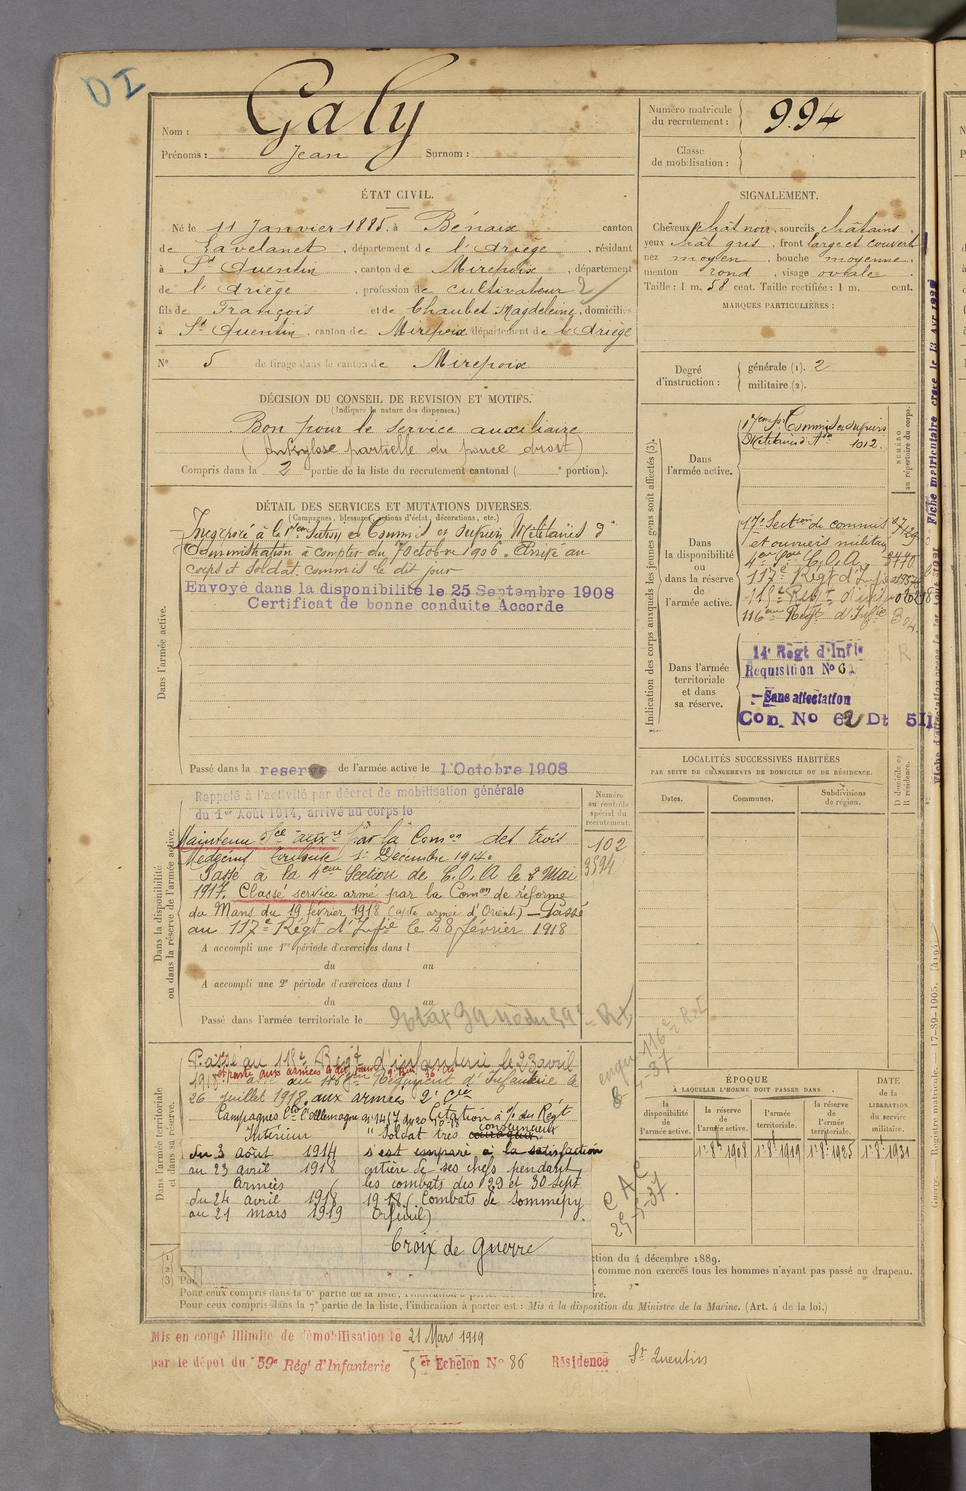 DI
Nom : Galy
Prénoms : Jean Surnom :
Numéro matricule du recrutement : 994
Classe de mobilisation :
ÉTAT CIVIL.
Né le 11 Janvier 1885, à Bénaix canton
de Lavelanet, département de l'Ariège, résidant
à St Quentin, canton de Mirepoix, département
de l'Ariège, profession de cultivateur 2/
fils de François et de Chaubet Magdeleine, domiciliés
à St Quentin, canton de Mirepoix département de l'Ariège
N° 5 de tirage dans le canton de Mirepoix
SIGNALEMENT.
Cheveux chât noir, sourcils châtains
yeux chât gris, front large et couvert
nez moyen, bouche moyenne
menton rond, visage ovale
Taille : 1 m. 58 cent. Taille rectifiée : 1 m. cent.
MARQUES PARTICULIÈRES :
Degré d'instruction : générale (1). 2
militaire (2).
DÉCISION DU CONSEIL DE REVISION ET MOTIFS.
(Indiquer la nature des dispenses.)
Bon pour le service auxiliaire
(Ankylose partielle du pouce droit)
Compris dans la 2 partie de la liste du recrutement cantonal ( portion).
DÉTAIL DES SERVICES ET MUTATIONS DIVERSES.
(Campagnes, blessures, actions d'éclat, décorations, etc.)
Dans l'armée active.
Incorporé à la 17em Section de Commis et ouvriers Militaires d'
Administration à compter du 7 octobre 1906. Arrivé au
corps et soldat commis le dit jour
Envoyé dans la disponibilité le 25 Septembre 1908
Certificat de bonne conduite Accorde
Passé dans la reserve de l'armée active le 1 Octobre 1908
Indication des corps auxquels les jeunes gens sont affectés (3).
NUMÉRO au répertoire du corps.
Dans l'armée active.
17em Son Commis et ouvriers
Militaires d'Aon 1012
Dans la disponibilité ou dans la réserve de l'armée active.
17e Section de commis
et ouvriers militaires
4eme Son C.O.A 3440
117e Régt d'Infie
115e Régt d'infie
116eme Régt d'Infie
R
Dans l'armée territoriale et dans sa réserve.
14e Regt d'Infie
Requisition N° 62
Sans affectation
Con. No 62 Dt 511
Dans la disponibilité ou dans la réserve de l'armée active.
Numéro au contrôle spécial du recrutement.
102
3594
Rappelé à l'activité par décret de mobilisation générale
du 1er Août 1914, arrivé au corps le
Maintenu sce auxre par la Comon des trois
Médecins Toulouse 1er Décembre 1914.
Passé à la 4eme Section de C.O.A le 8 Mai
1917. Classé service armé par la Comon de réforme
du Mans du 19 février 1918 (apte armée d'Orient) - Passé
au 117e Régt d'Infie le 28 février 1918
A accompli une 1re période d'exercices dans l
du au
A accompli une 2e période d'exercices dans l
du au
Passé dans l'armée territoriale le
LOCALITÉS SUCCESSIVES HABITÉES
PAR SUITE DE CHANGEMENTS DE DOMICILE OU DE RÉSIDENCE.
Dates. Communes. Subdivisions de région. D domicile ou R résidence.
Dans l'armée territoriale et dans sa réserve.
Passé au 115e Régt d'infanterie le 23 avril
1918. Passé au 116eme Régiment d'Infanterie le
26 juillet 1918, aux armées 2e Cie
Campagnes cte l'Allemagne Citation à l'o/ du Régt
Intérieur "Soldat très consciencieux
du 3 août 1914 s'est emparé à la satisfaction
au 23 avril 1918 entière de ses chefs pendant
Armées les combats des 29 et 30 Sept.
du 24 avril 1918 1918 (Combats de Sommepy
au 21 mars 1919 Orfeuil)
Croix de guerre
116e R.I
CAC
ÉPOQUE
À LAQUELLE L'HOMME DOIT PASSER DANS
la disponibilité de l'armée active. la réserve de l'armée active. l'armée territoriale. la réserve de l'armée territoriale.
DATE de la LIBÉRATION du service militaire.
1r 8bre 1908 1r 8bre 1919 1r 8bre 1925 1r 8bre 1931
ction du 4 décembre 1889.
comme non exercés tous les hommes n'ayant pas passé au drapeau.
Pour ceux compris dans la 6e partie de la liste, l'indication à porter
Pour ceux compris dans la 7e partie de la liste, l'indication à porter est : Mis à la disposition du Ministre de la Marine. (Art. 4 de la loi.)
Mis en congé illimité de démobilisation le 21 Mars 1919
par le dépot du 59e Régt d'Infanterie 5er Echelon N° 86 Résidence St Quentin
Guerre. Registre matricule. 17-89-1905.